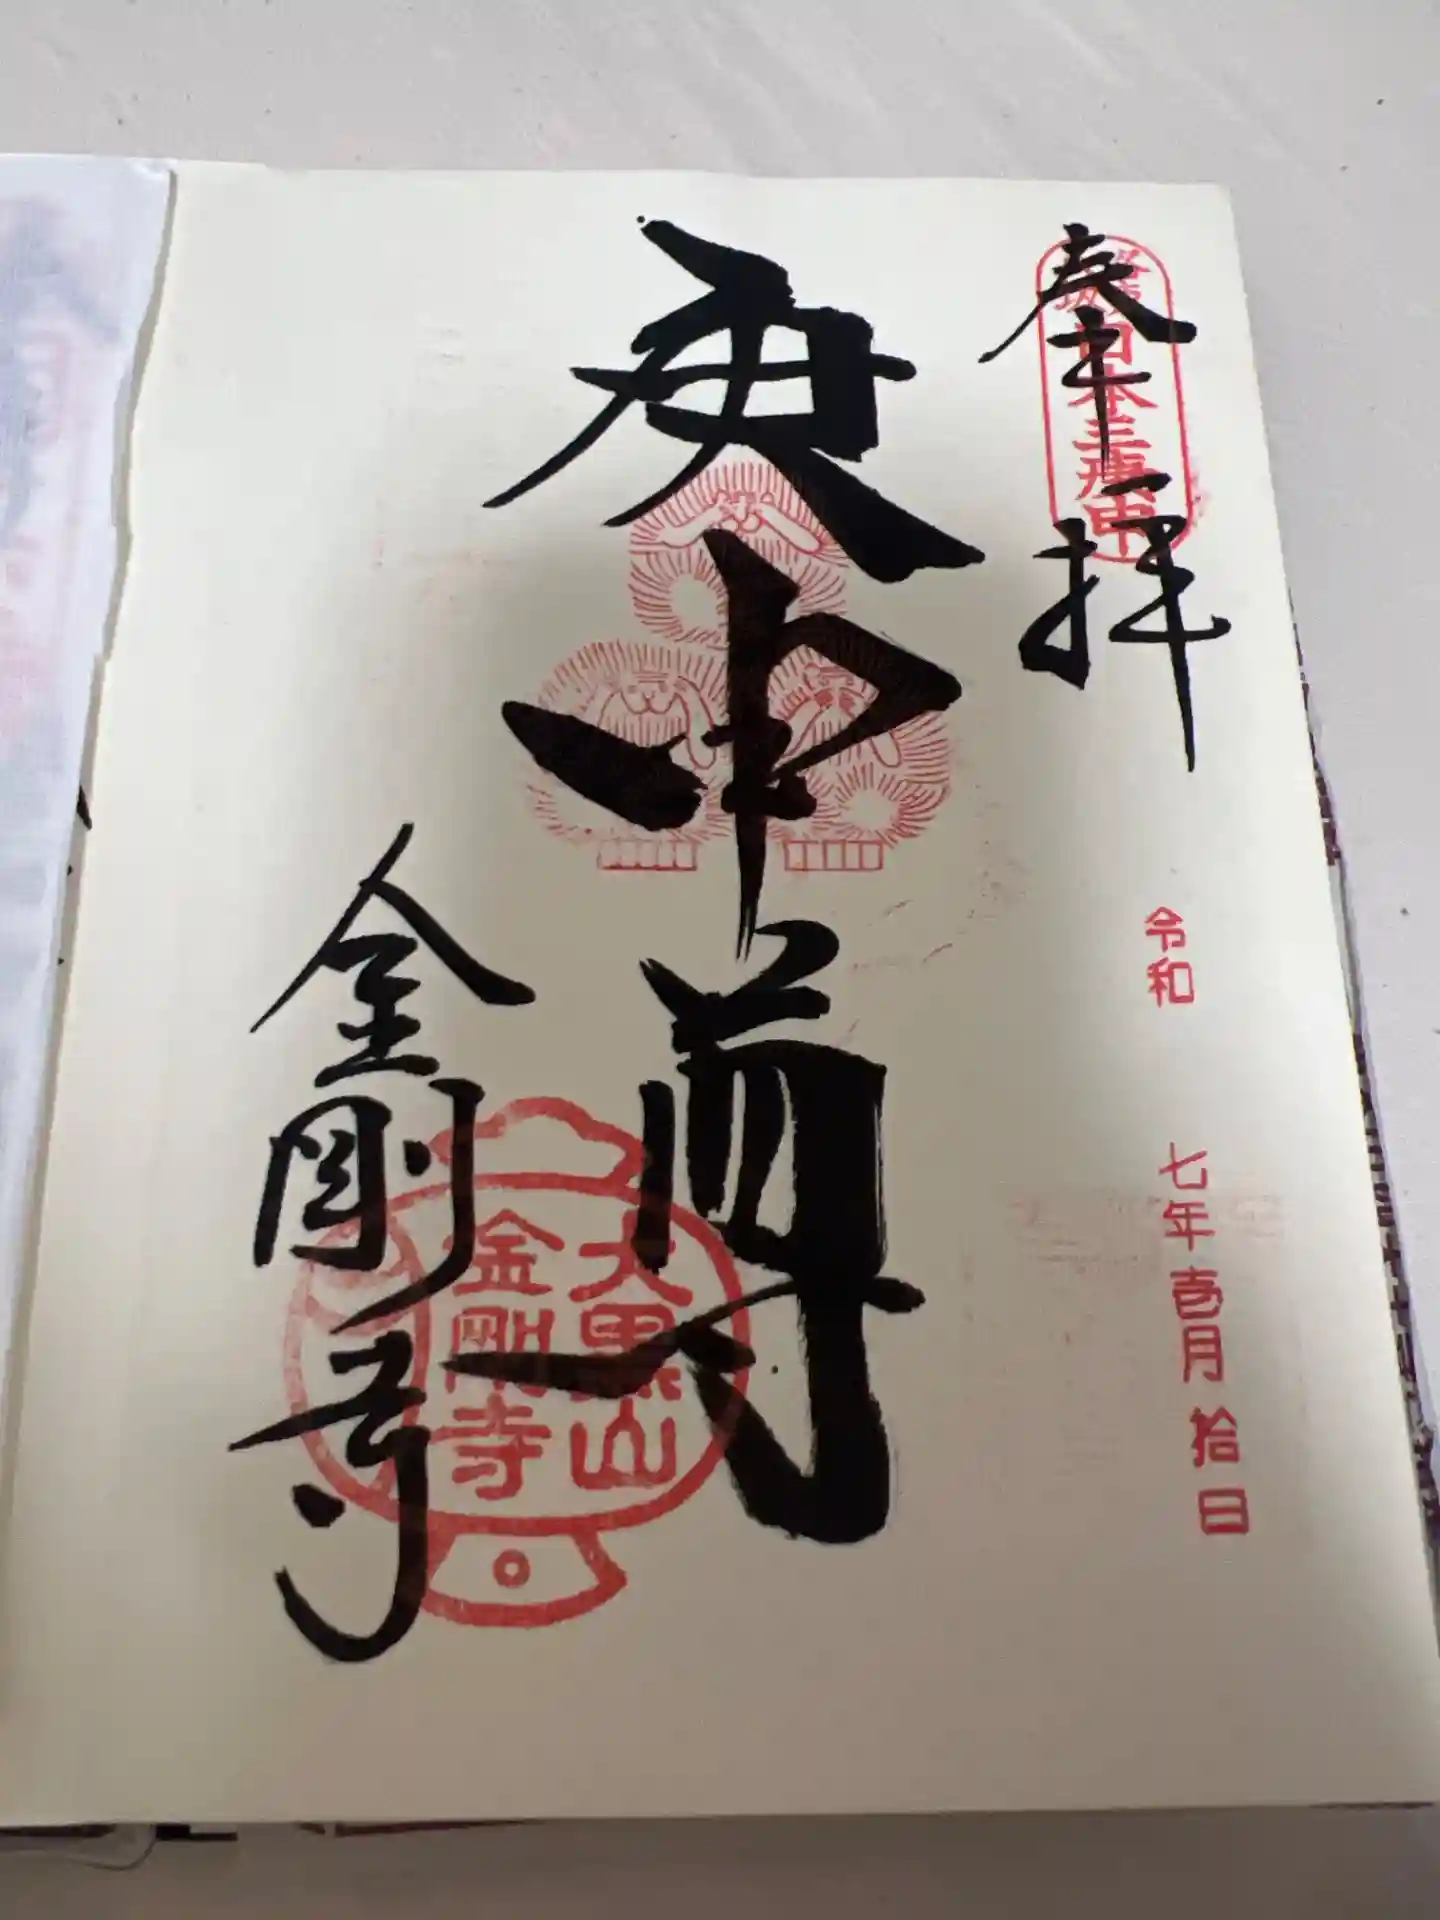 奉拝
日本三庚申
令和 七年 壱月 拾日
庚申尊
金剛寺
大黒山
金剛寺